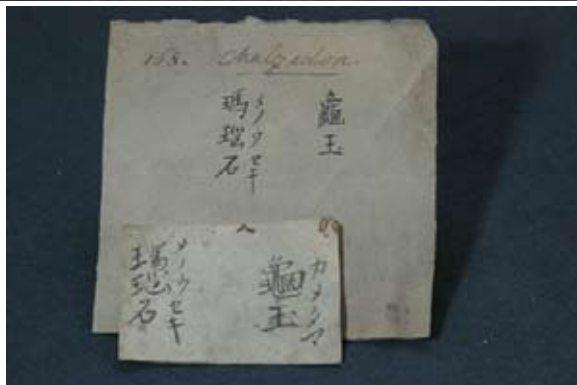 Chalzedon.
龜玉
メノウセキ
瑪瑙石
カメタマ
龜玉
メノウセキ
瑪瑙石